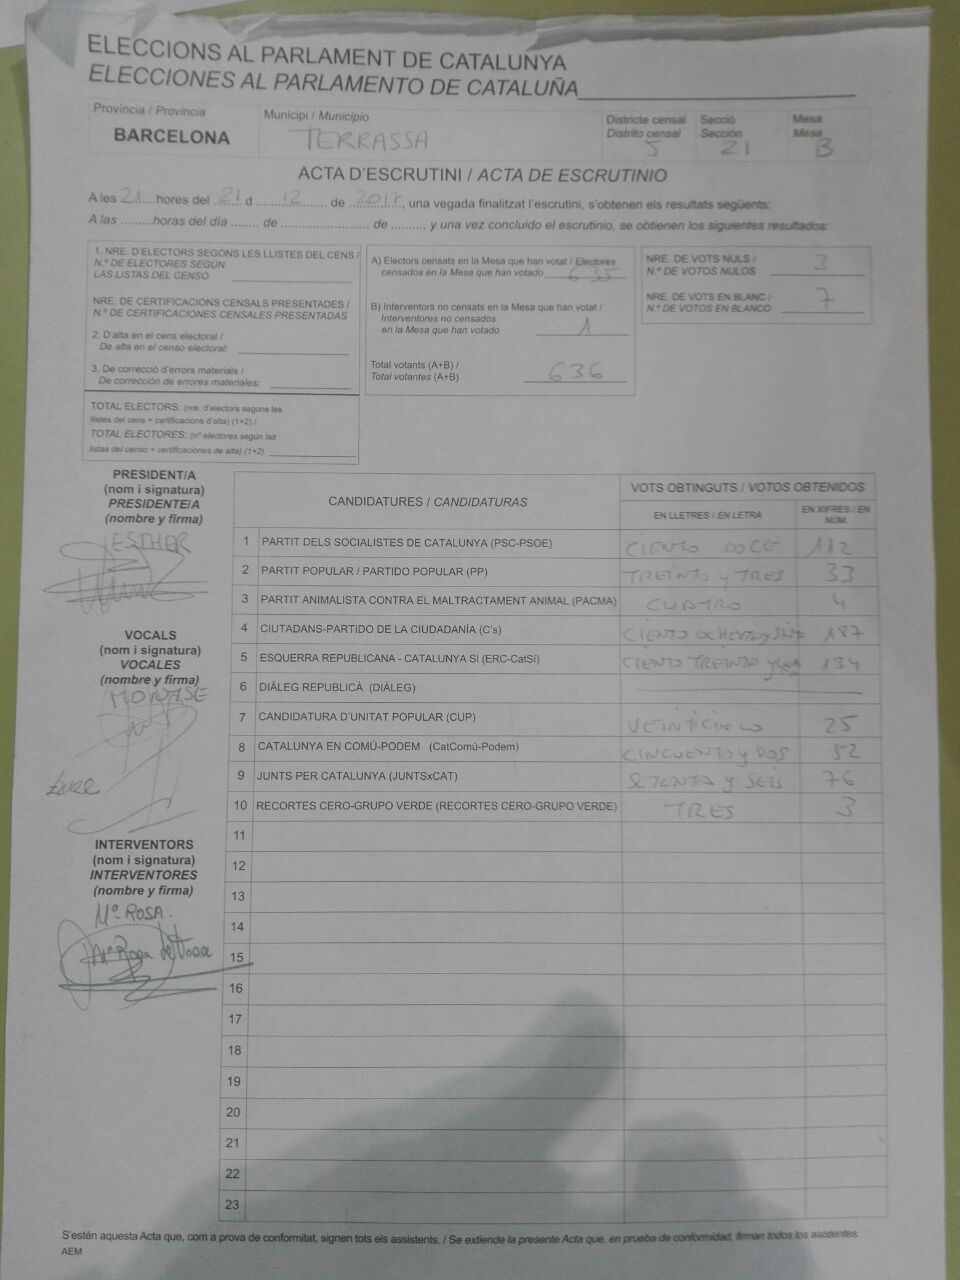 ELECCIONS AL PARLAMENT DE CATALUNYA
ELECCIONES AL PARLAMENTO DE CATALUÑA
Provincia / Provincia
BARCELONA
Municipi / Municipio
TERRASSA
Districte censal
Distrito censal
5
Secció
Sección
21
Mesa
Mesa
B
ACTA D'ESCRUTINI / ACTA DE ESCRUTINIO
A les 21 hores del 21 d 12 de 2017, una vegada finalitzat l'escrutini, s'obtenen els resultats següents:
A las ......... horas del día ....... de ........................ de ........., y una vez concluido el escrutinio, se obtienen los siguientes resultados:
1. NRE. D'ELECTORS SEGONS LES LLISTES DEL CENS /
N.º DE ELECTORES SEGÚN
LAS LISTAS DEL CENSO
NRE. DE CERTIFICACIONS CENSALS PRESENTADES /
N.º DE CERTIFICACIONES CENSALES PRESENTADAS
2. D'alta en el cens electoral /
De alta en el censo electoral:
3. De correcció d'errors materials /
De corrección de errores materiales:
TOTAL ELECTORS: (nre. d'electors segons les
llistes del cens + certificacions d'alta) (1+2) /
TOTAL ELECTORES: (nº electores según las
listas del censo + certificaciones de alta) (1+2)
A) Electors censats en la Mesa que han votat / Electores
censados en la Mesa que han votado 635
B) Interventors no censats en la Mesa que han votat /
Interventores no censados
en la Mesa que han votado 1
Total votants (A+B) /
Total votantes (A+B) 636
NRE. DE VOTS NULS /
N.º DE VOTOS NULOS 3
NRE. DE VOTS EN BLANC /
N.º DE VOTOS EN BLANCO 7
PRESIDENT/A
(nom i signatura)
PRESIDENTE/A
(nombre y firma)
ESTHER
VOCALS
(nom i signatura)
VOCALES
(nombre y firma)
MONTSE
INTERVENTORS
(nom i signatura)
INTERVENTORES
(nombre y firma)
Mª ROSA.
CANDIDATURES / CANDIDATURAS
VOTS OBTINGUTS / VOTOS OBTENIDOS
EN LLETRES / EN LETRA
EN XIFRES / EN
NÚM.
1 PARTIT DELS SOCIALISTES DE CATALUNYA (PSC-PSOE) CIENTO DOCE 112
2 PARTIT POPULAR / PARTIDO POPULAR (PP) TREINTA Y TRES 33
3 PARTIT ANIMALISTA CONTRA EL MALTRACTAMENT ANIMAL (PACMA) CUATRO 4
4 CIUTADANS-PARTIDO DE LA CIUDADANÍA (C's) CIENTO OCHENTA y 187
5 ESQUERRA REPUBLICANA - CATALUNYA SÍ (ERC-CatSí) CIENTO TREINTA y 134
6 DIÀLEG REPUBLICÀ (DIÀLEG)
7 CANDIDATURA D'UNITAT POPULAR (CUP) VEINTICINCO 25
8 CATALUNYA EN COMÚ-PODEM (CatComú-Podem) CINCUENTA y DOS 52
9 JUNTS PER CATALUNYA (JUNTSxCAT) SETENTA y SEIS 76
10 RECORTES CERO-GRUPO VERDE (RECORTES CERO-GRUPO VERDE) TRES 3
11
12
13
14
15
16
17
18
19
20
21
22
23
S'estén aquesta Acta que, com a prova de conformitat, signen tots els assistents. / Se extiende la presente Acta que, en prueba de conformidad, firman todos los asistentes.
AEM